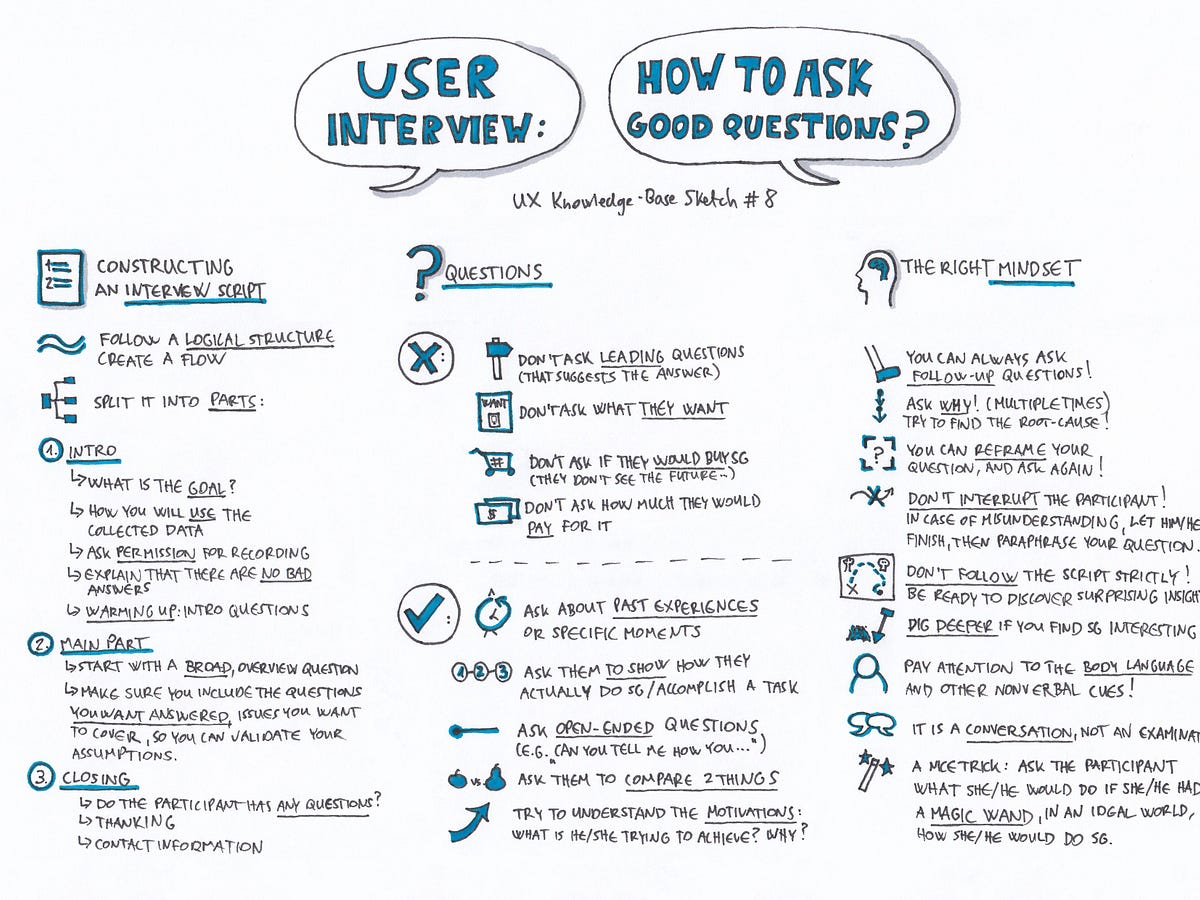 USER
INTERVIEW:
HOW TO ASK
GOOD QUESTIONS?
UX Knowledge-Base Sketch #8
1
2
CONSTRUCTING
AN INTERVIEW SCRIPT
FOLLOW A LOGICAL STRUCTURE
CREATE A FLOW
SPLIT IT INTO PARTS:
1. INTRO
↳ WHAT IS THE GOAL?
↳ HOW YOU WILL USE THE
COLLECTED DATA
↳ ASK PERMISSION FOR RECORDING
↳ EXPLAIN THAT THERE ARE NO BAD
ANSWERS
↳ WARMING UP: INTRO QUESTIONS
2. MAIN PART
↳ START WITH A BROAD, OVERVIEW QUESTION
↳ MAKE SURE YOU INCLUDE THE QUESTIONS
YOU WANT ANSWERED, ISSUES YOU WANT
TO COVER, SO YOU CAN VALIDATE YOUR
ASSUMPTIONS.
3. CLOSING
↳ DO THE PARTICIPANT HAS ANY QUESTIONS?
↳ THANKING
↳ CONTACT INFORMATION
? QUESTIONS
X:
DON'T ASK LEADING QUESTIONS
(THAT SUGGESTS THE ANSWER)
WANT
DON'T ASK WHAT THEY WANT
#
DON'T ASK IF THEY WOULD BUY SG
(THEY DON'T SEE THE FUTURE..)
$
DON'T ASK HOW MUCH THEY WOULD
PAY FOR IT
✓:
ASK ABOUT PAST EXPERIENCES
OR SPECIFIC MOMENTS
1-2-3
ASK THEM TO SHOW HOW THEY
ACTUALLY DO SG/ACCOMPLISH A TASK
ASK OPEN-ENDED QUESTIONS
(E.G. "CAN YOU TELL ME HOW YOU...")
VS.
ASK THEM TO COMPARE 2 THINGS
TRY TO UNDERSTAND THE MOTIVATIONS:
WHAT IS HE/SHE TRYING TO ACHIEVE? WHY?
THE RIGHT MINDSET
YOU CAN ALWAYS ASK
FOLLOW-UP QUESTIONS!
ASK WHY! (MULTIPLE TIMES)
TRY TO FIND THE ROOT-CAUSE!
?
YOU CAN REFRAME YOUR
QUESTION, AND ASK AGAIN!
DON'T INTERRUPT THE PARTICIPANT!
IN CASE OF MISUNDERSTANDING, LET HIM/HE
FINISH, THEN PARAPHRASE YOUR QUESTION.
DON'T FOLLOW THE SCRIPT STRICTLY!
BE READY TO DISCOVER SURPRISING INSIGH
DIG DEEPER IF YOU FIND SG INTERESTING
PAY ATTENTION TO THE BODY LANGUAGE
AND OTHER NONVERBAL CUES!
IT IS A CONVERSATION, NOT AN EXAMINAT
A NICE TRICK: ASK THE PARTICIPANT
WHAT SHE/HE WOULD DO IF SHE/HE HAD
A MAGIC WAND, IN AN IDEAL WORLD,
HOW SHE/HE WOULD DO SG.